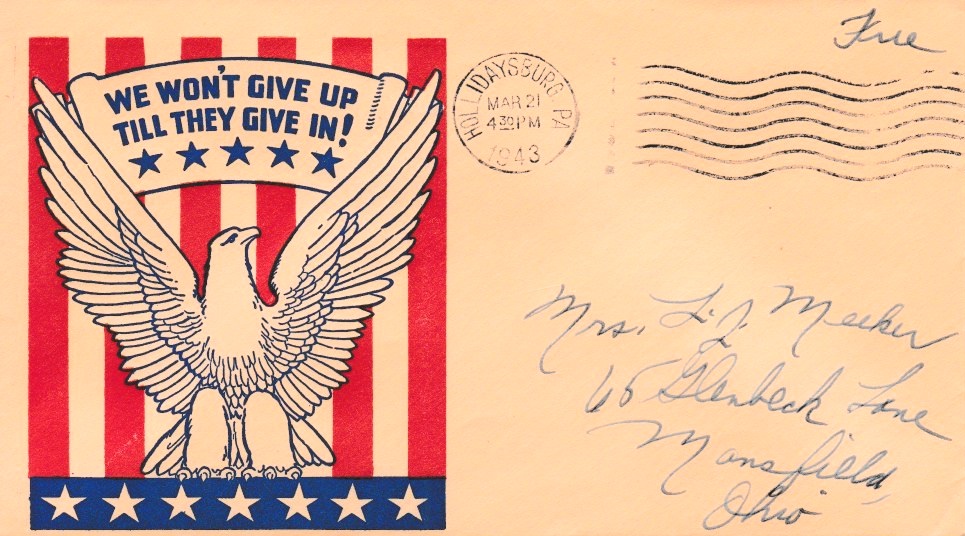 WE WON'T GIVE UP
TILL THEY GIVE IN!
HOLLIDAYSBURG, PA
MAR 21
4 30 PM
1943
Free
Mrs. L. J. Meeker
65 Glenbeck Lane
Mansfield,
Ohio